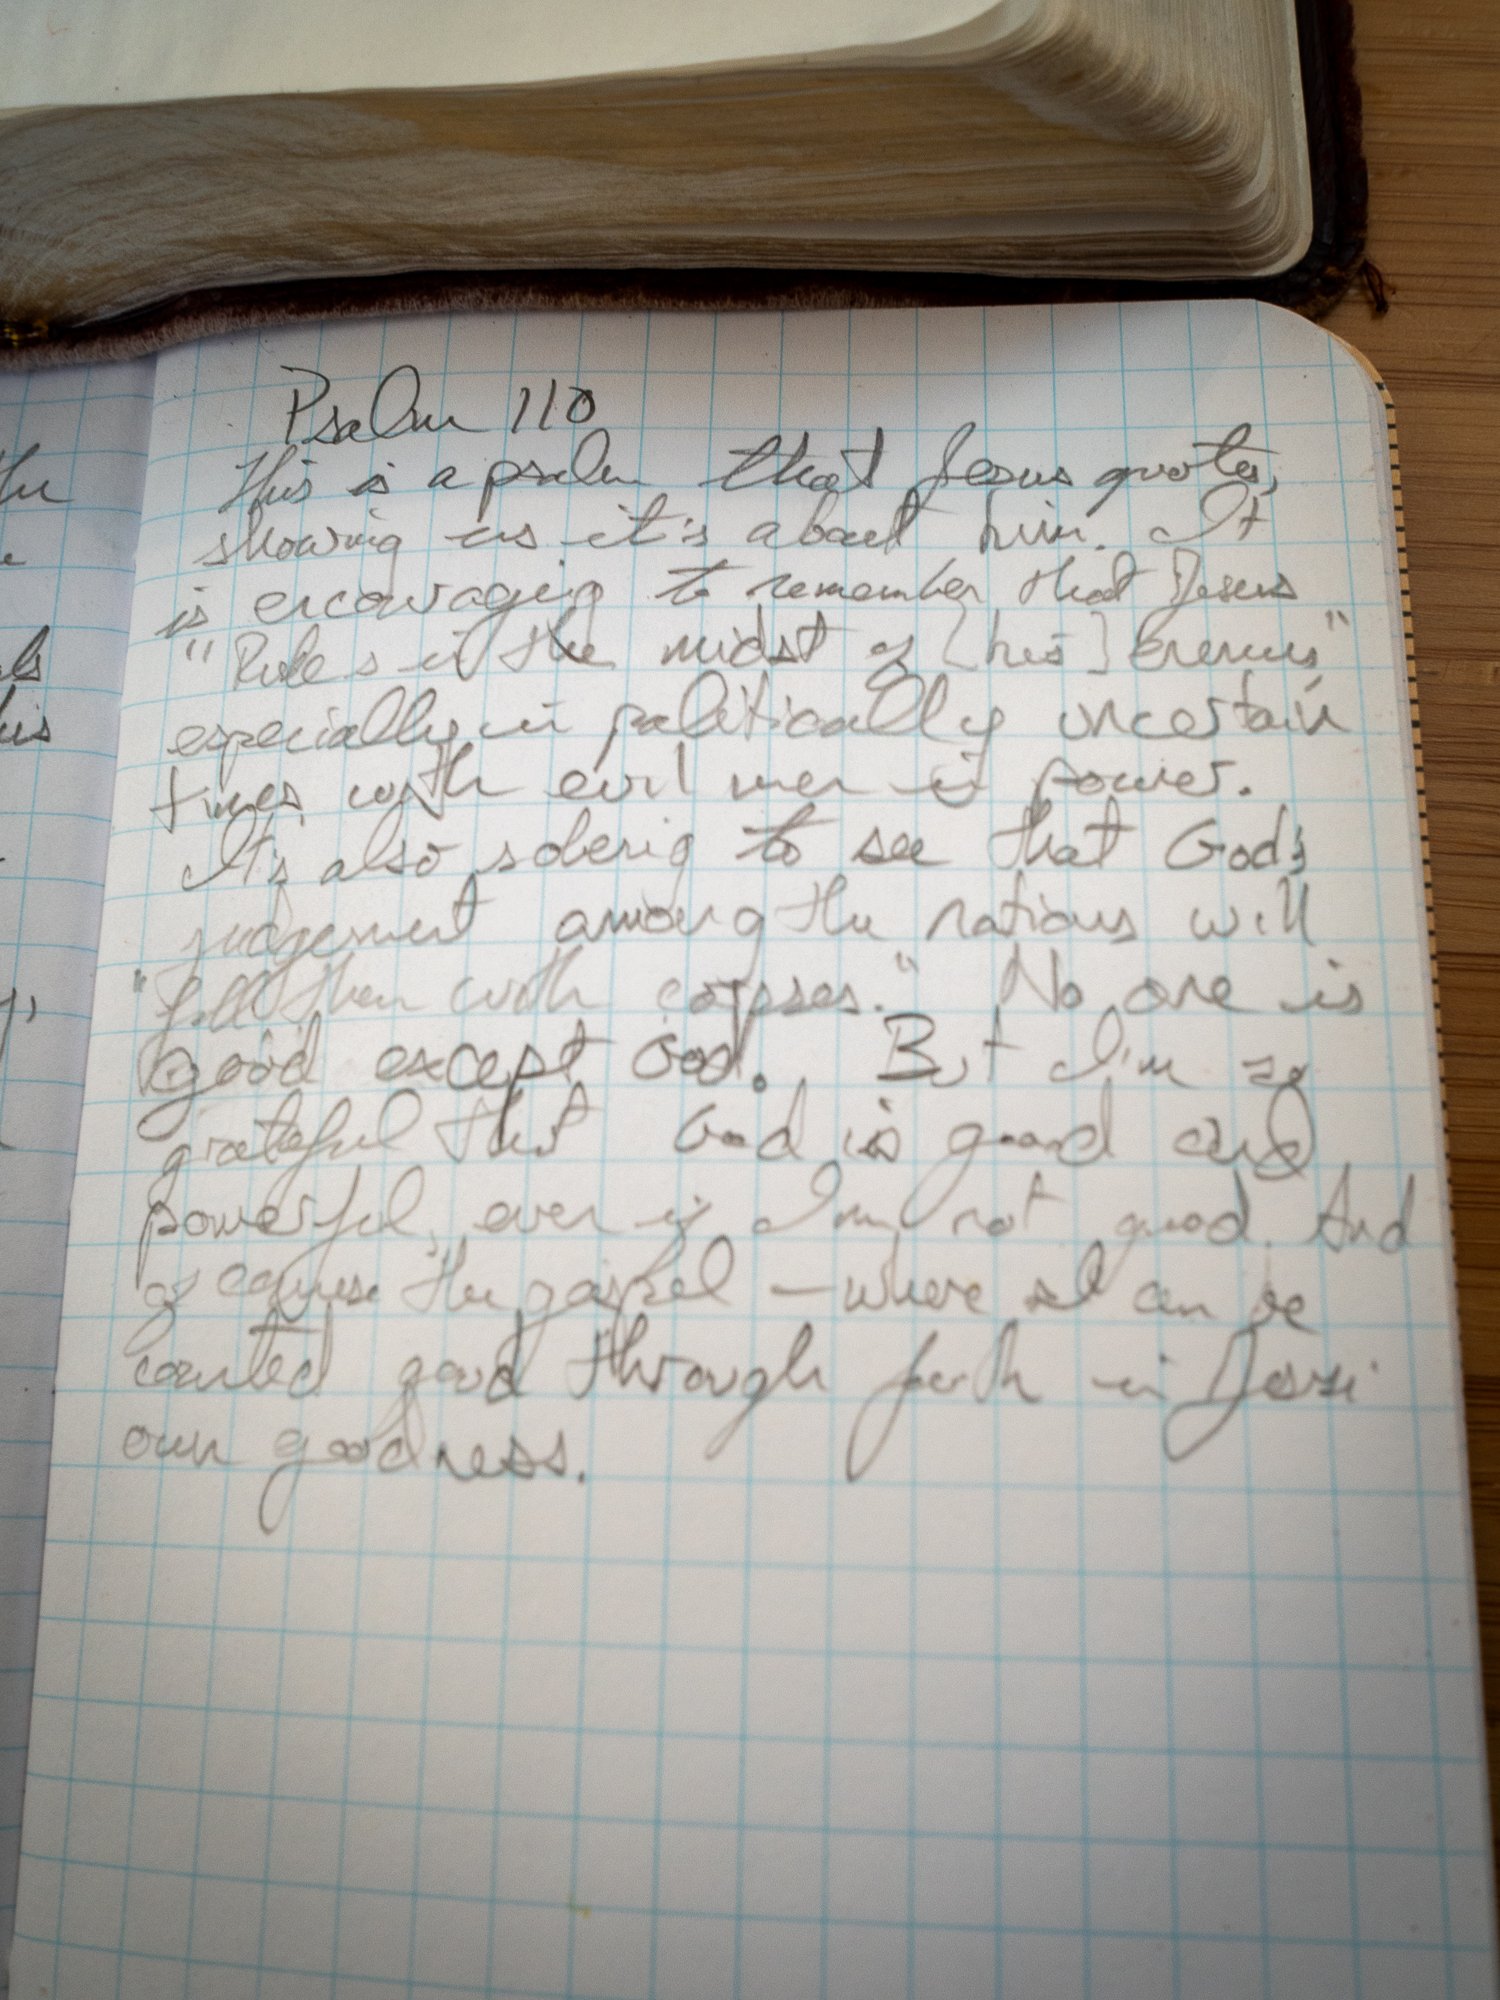 Psalm 110
This is a psalm that Jesus quotes,
showing us it's about him. It
is encouraging to remember that Jesus
"Rules in the midst of [his] enemies"
especially in politically uncertain
times with evil men in power.
It's also sobering to see that God's
judgement among the nations will
"fill them with corpses." No one is
good except God. But I'm so
grateful that God is good and
powerful, even if I'm not good. And
of course the gospel – where I can be
counted good through faith in Jesus'
own goodness.
the
his